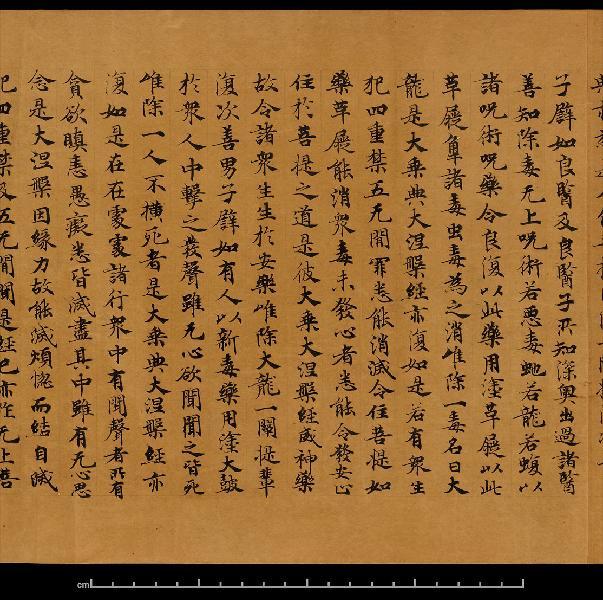 子譬如良醫及良醫子所知深奧出過諸醫
善知除毒无上呪術若惡毒虵若龍若蝮以
諸呪術呪藥令良復以此藥用塗革屣以此
草屣觸諸毒虫毒為之消唯除一毒名曰大
龍是大乘典大涅槃經亦復如是若有眾生
犯四重禁五无間罪悉能消滅令住菩提如
藥草屣能消眾毒未發心者悉能令發安止
住於菩提之道是彼大乘大涅槃經威神藥
故令諸眾生生於安樂唯除大龍一闡提輩
復次善男子譬如有人以新毒藥用塗大鼓
於眾人中擊之發聲雖无心欲聞聞之皆死
唯除一人不橫死者是大乘典大涅槃經亦
復如是在在處處諸行眾中有聞聲者所有
貪欲瞋恚愚癡悉皆滅盡其中雖有无心思
念是大涅槃因緣力故能滅煩惱而結自滅
犯四重禁及五无間聞是經已亦作无上菩